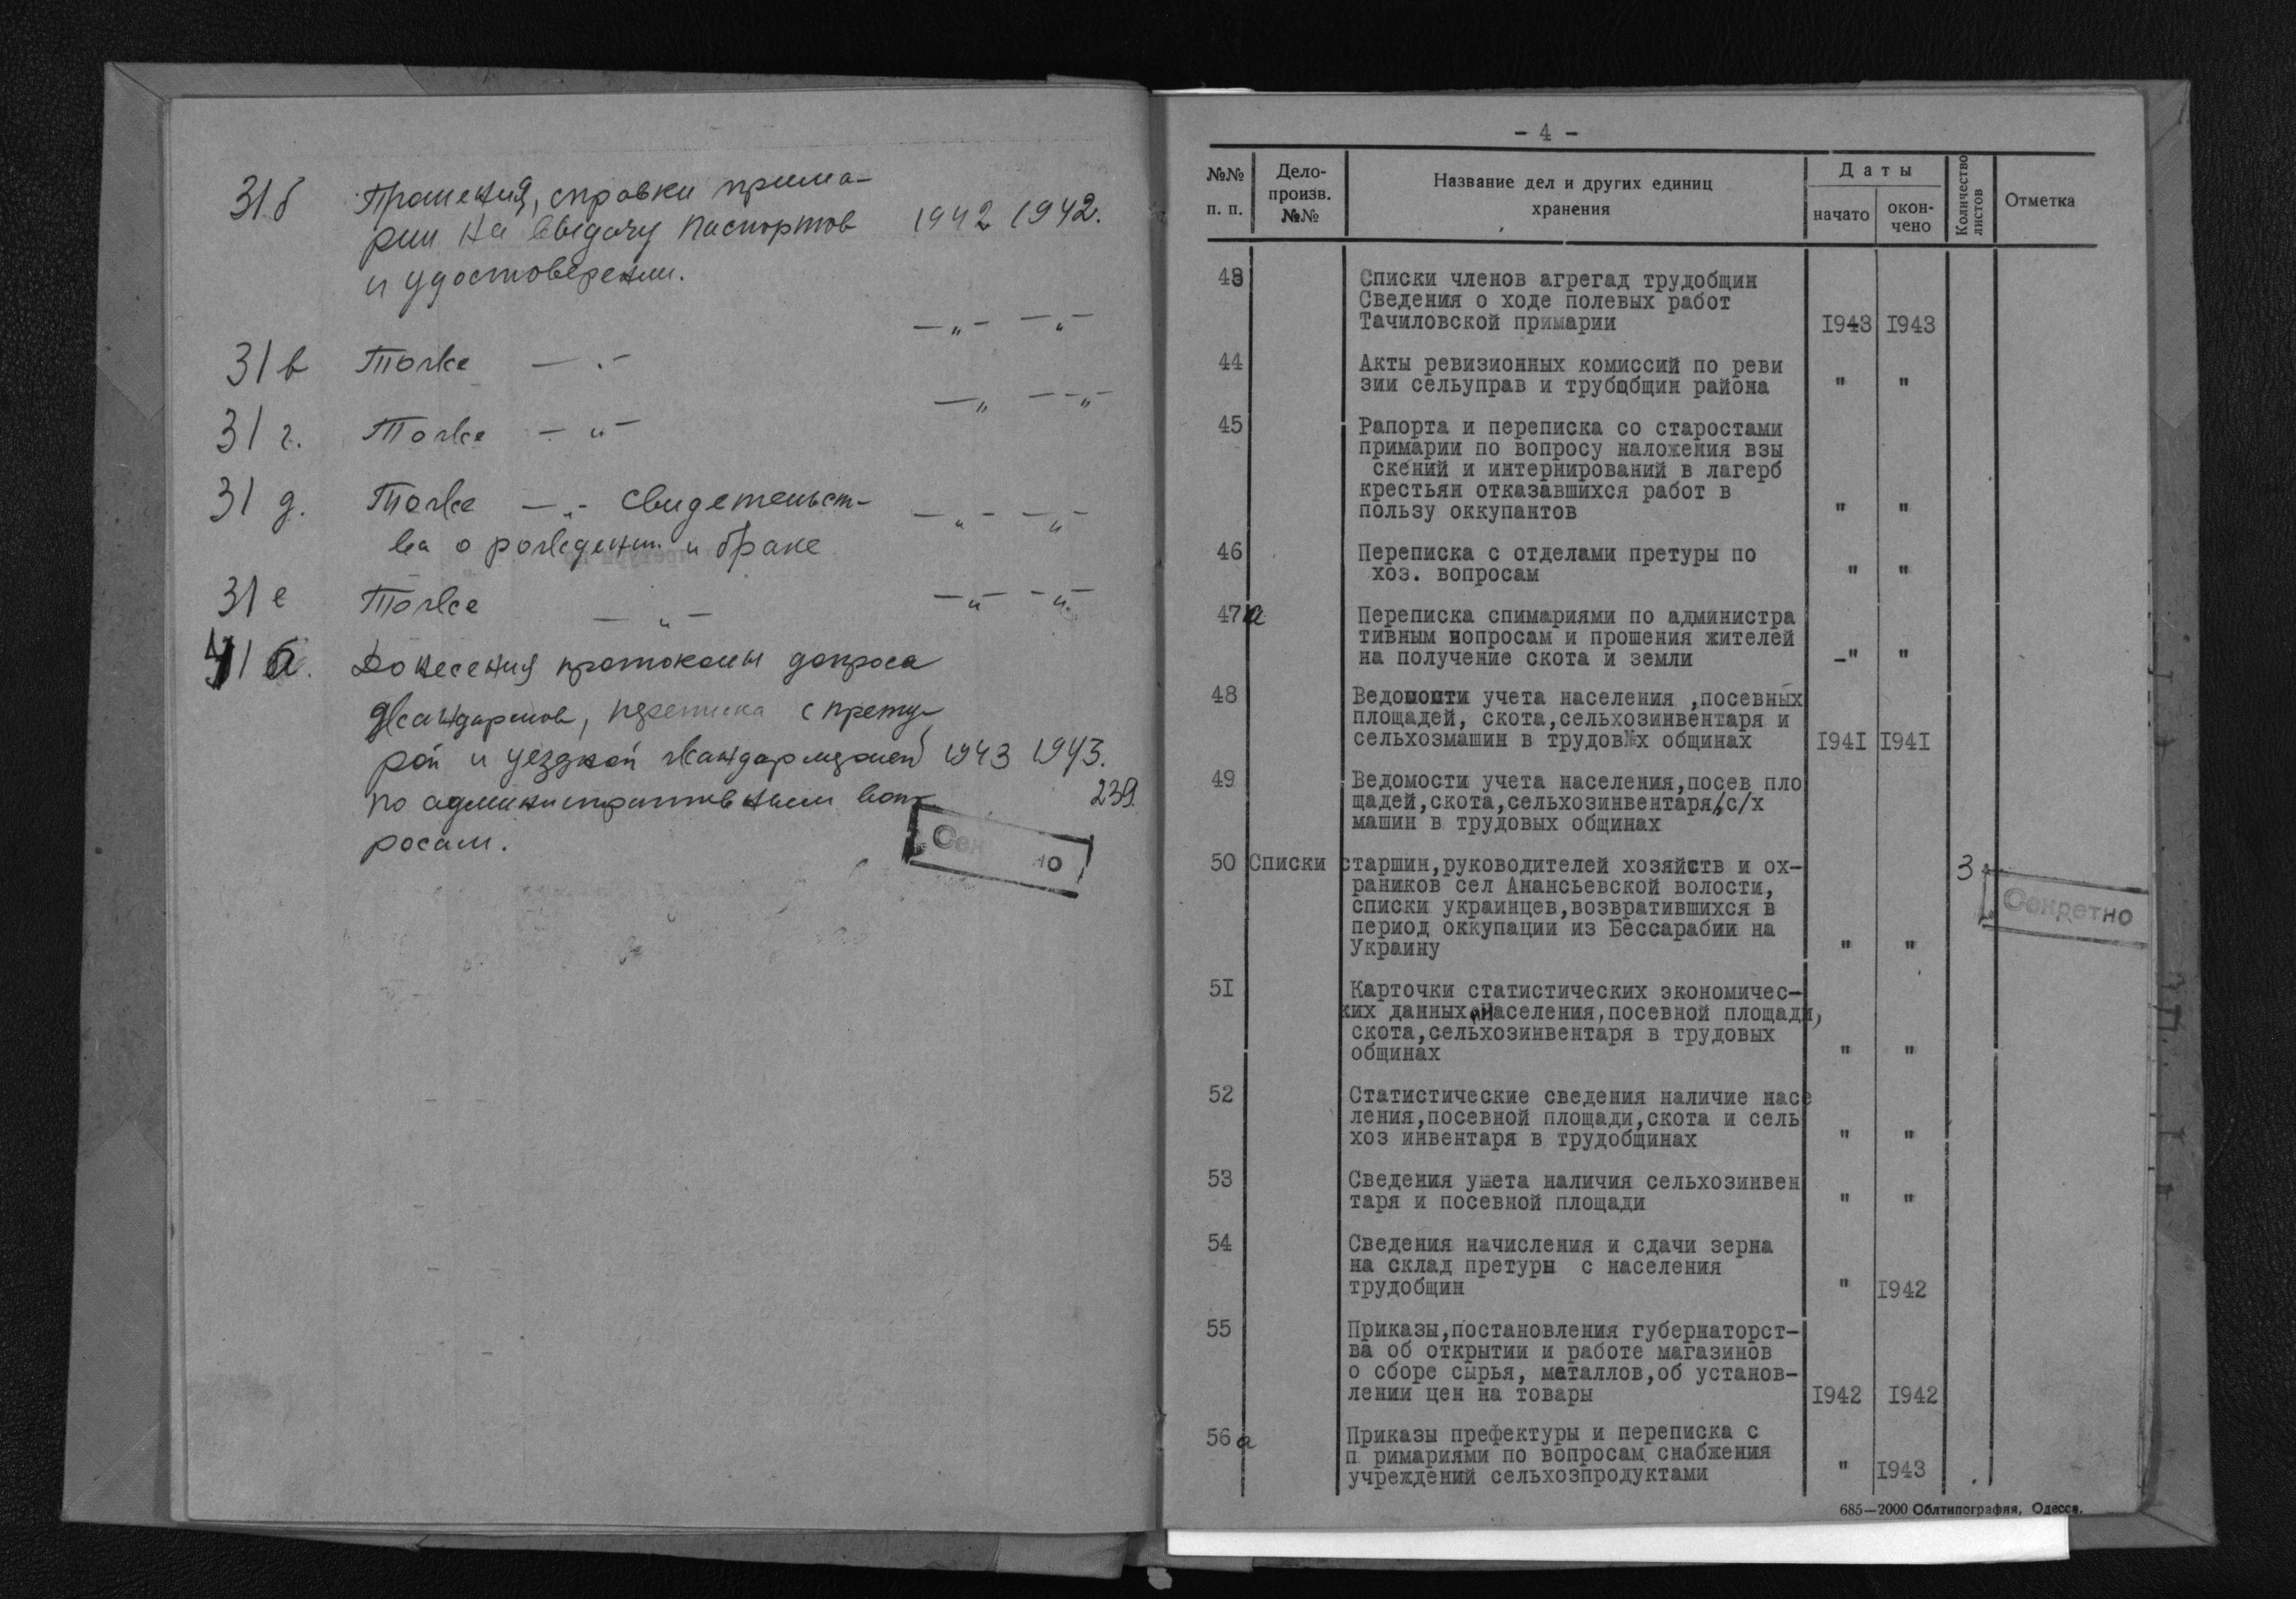 31б Прошения, справки прима-
рии на выдачу паспортов 1942 1942.
и удостоверении.
—„— —„—
31 в Тоже —„—
—„ — —„—
31 г. Тоже — „ —
31 д. Тоже —„— свидетельст- —„— —„—
ва о рождении и браке
31 е Тоже — „ — —„— —„—
41 б. Донесения протоколы допроса
жандармов, переписка с прету-
рой и уездной жандармерией 1943 1943.
по административным воп- 239.
росам.
Секретно
- 4 -
№№ п. п.
Дело-
произв.
№№
Название дел и других единиц
хранения
Даты
начато
окон-
чено
Количество
листов
Отметка
43 Списки членов агрегад трудобщин
Сведения о ходе полевых работ
Тачиловской примарии I943 I943
44 Акты ревизионных комиссий по реви
зии сельуправ и трубобщин района " "
45 Рапорта и переписка со старостами
примарии по вопросу наложения взы
скений и интернирований в лагерб
крестьян отказавшихся работ в
пользу оккупантов " "
46 Переписка с отделами претуры по
хоз. вопросам " "
47а Переписка спимариями по администра
тивным вопросам и прошения жителей
на получение скота и земли -" "
48 Ведомости учета населения ,посевных
площадей, скота,сельхозинвентаря и
сельхозмашин в трудовых общинах I94I I94I
49 Ведомости учета населения,посев пло
щадей,скота,сельхозинвентаря,с/х
машин в трудовых общинах
50 Списки старшин,руководителей хозяйств и ох- 3
раников сел Анансьевской волости,
списки украинцев,возвратившихся в
период оккупации из Бессарабии на
Украину " "
Секретно
5I Карточки статистических экономичес-
ких данных, населения,посевной площади,
скота,сельхозинвентаря в трудовых
общинах " "
52 Статистические сведения наличие насе
ления,посевной площади,скота и сель
хоз инвентаря в трудобщинах " "
53 Сведения учета наличия сельхозинвен
таря и посевной площади " "
54 Сведения начисления и сдачи зерна
на склад претуры с населения
трудобщин " I942
55 Приказы,постановления губернаторст-
ва об открытии и работе магазинов
о сборе сырья, металлов,об установ-
лении цен на товары I942 I942
56а Приказы префектуры и переписка с
п римариями по вопросам снабжения
учреждений сельхозпродуктами " I943
685—2000 Облтипография, Одесса.